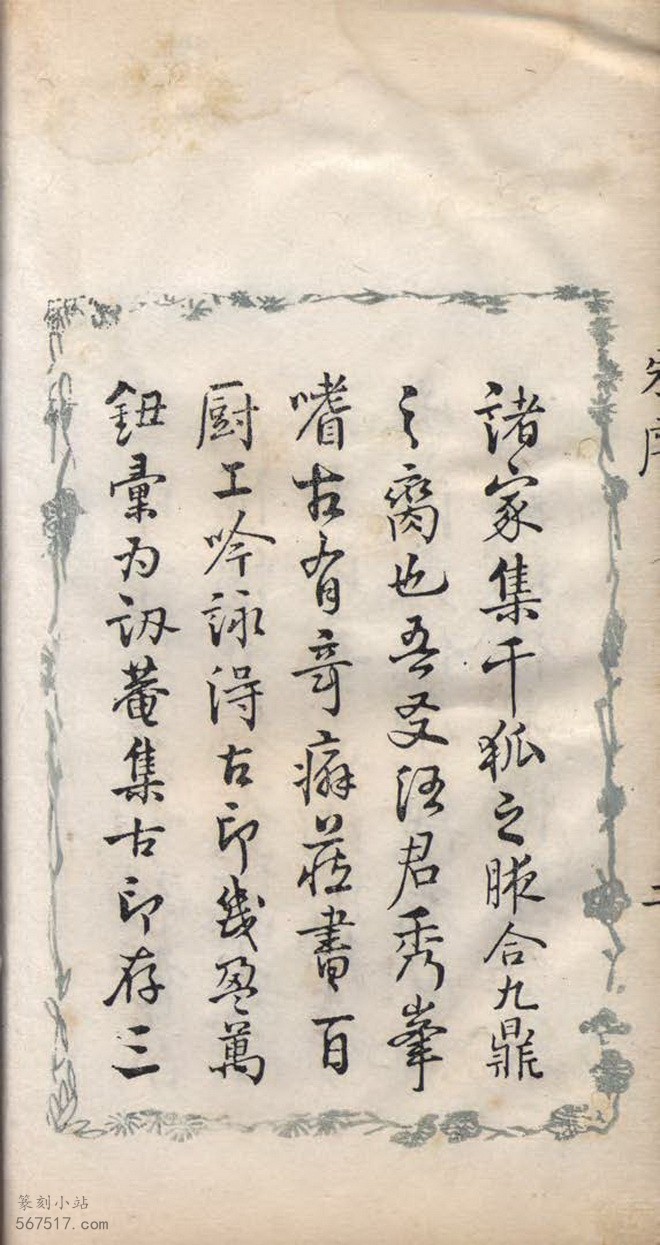 諸家集千狐之腋合九鼎
之臠也吾友汪君秀峯
嗜古有奇癖蓄書百
厨工吟詠得古印幾盈萬
鈕彙為訒菴集古印存三
二
篆刻小站
567517.com